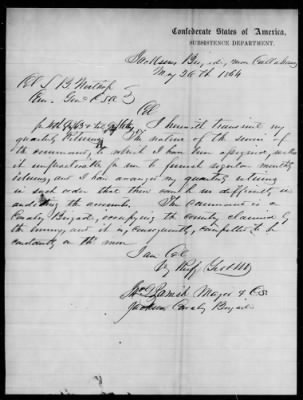 Confederate States of America,
SUBSISTENCE DEPARTMENT.
Jacksons Brigade, near
May 26th 1864
Col L B Northrop
Com. Gen. C.S.A.
Col
I herewith transmit my
quarterly returns The nature of the service of
the command, to which I have been assigned, makes
it impracticable for me to furnish regular monthly
returns, and I have arranged my quarterly returns
in such order that there could be no difficulty in
auditing the accounts. The command is a
Cavalry Brigade, occupying the country claimed by
the enemy, and it is, consequently, compelled to be
constantly on the move
I am Col
Very Respy
Major & C.S.
Jacksons Cavalry Brigade